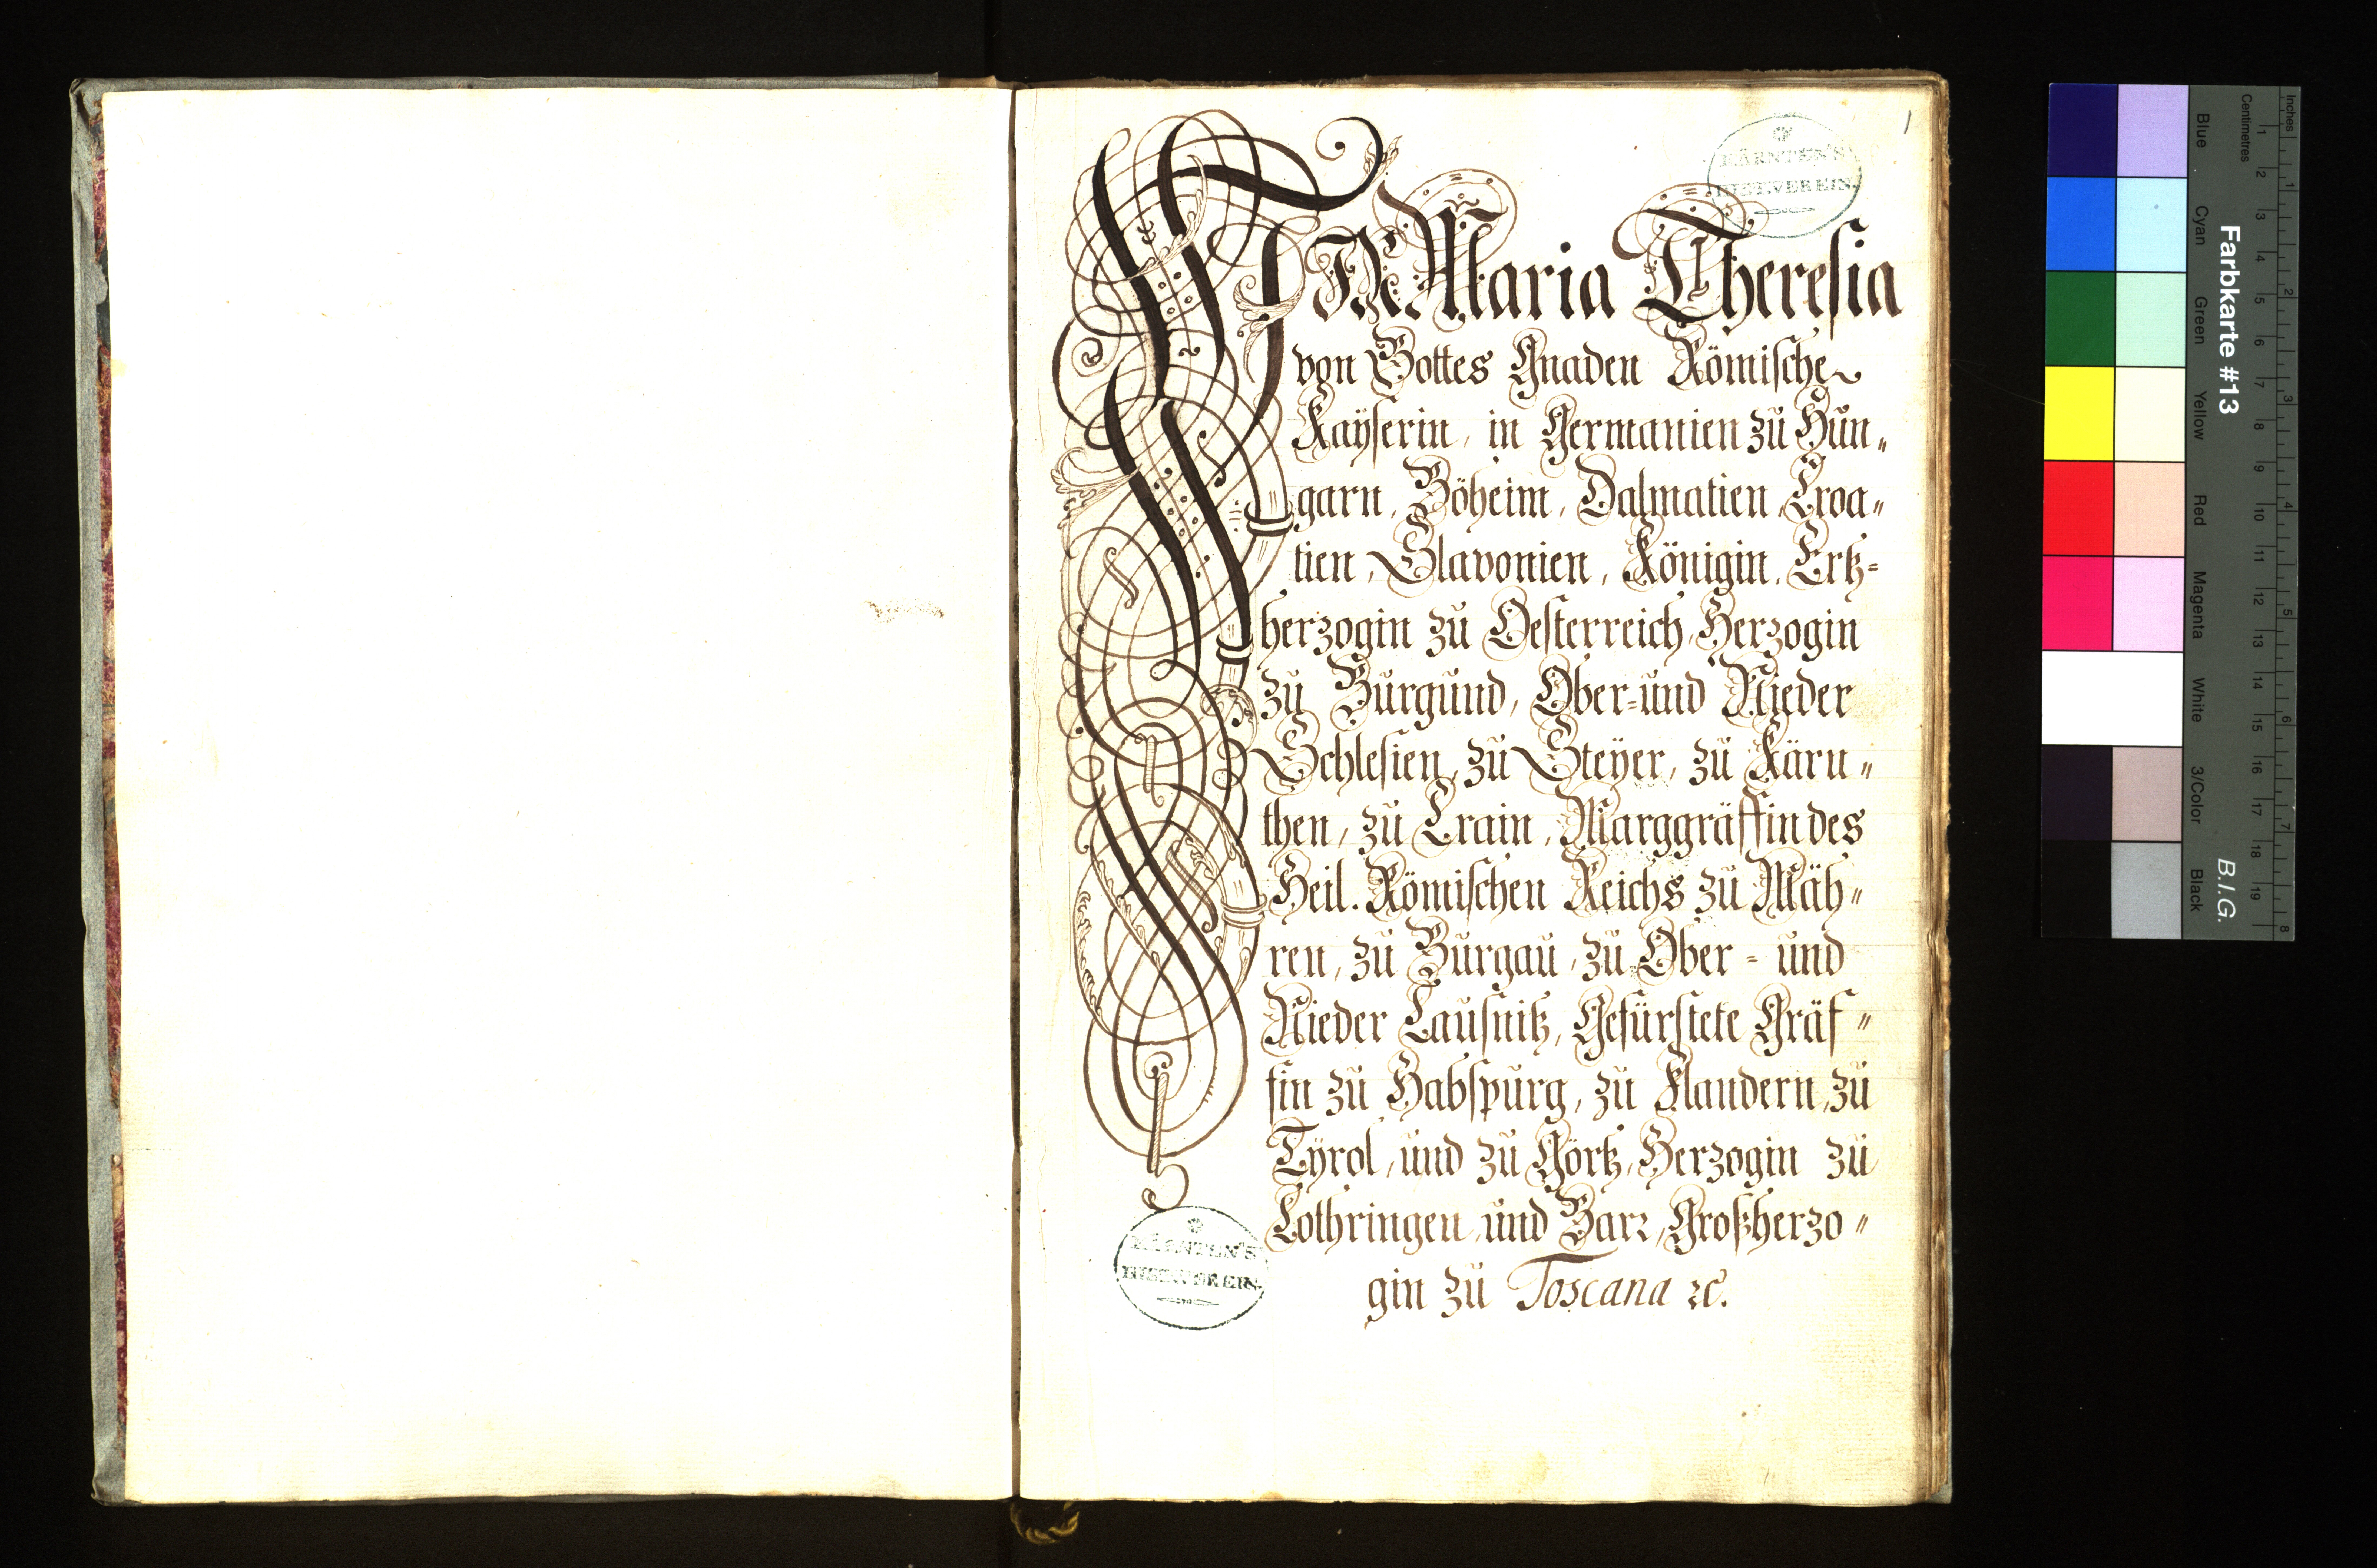 1
KÄRNTEN'S
HIST. VEREIN
WIR Maria Theresia
von Gottes Gnaden Römische
Kaÿserin, in Germanien zu Hun„
garn, Böheim, Dalmatien, Croa„
tien, Slavonien, Königin, Ertz-
herzogin zu Oesterreich, Herzogin
zu Burgund, Ober- und Nieder
Schlesien, zu Steÿer, zu Kärn„
then, zu Crain, Marggräffin des
Heil. Römischen Reichs zu Mäh„
ren, zu Burgau, zu Ober- und
Nieder Lausnitz, Gefürstete Gräf„
fin zu Habspurg, zu Flandern, zu
Tÿrol, und zu Görtz, Herzogin zu
Lothringen und Barr, Großherzo„
gin zu Toscana ꝛc.
KÄRNTEN'S
HIST. VEREIN
Farbkarte #13
B.I.G.
Blue
Cyan
Green
Yellow
Red
Magenta
White
3/Color
Black
Centimetres
1 2 3 4 5 6 7 8 9 10 11 12 13 14 15 16 17 18 19
Inches
1 2 3 4 5 6 7 8